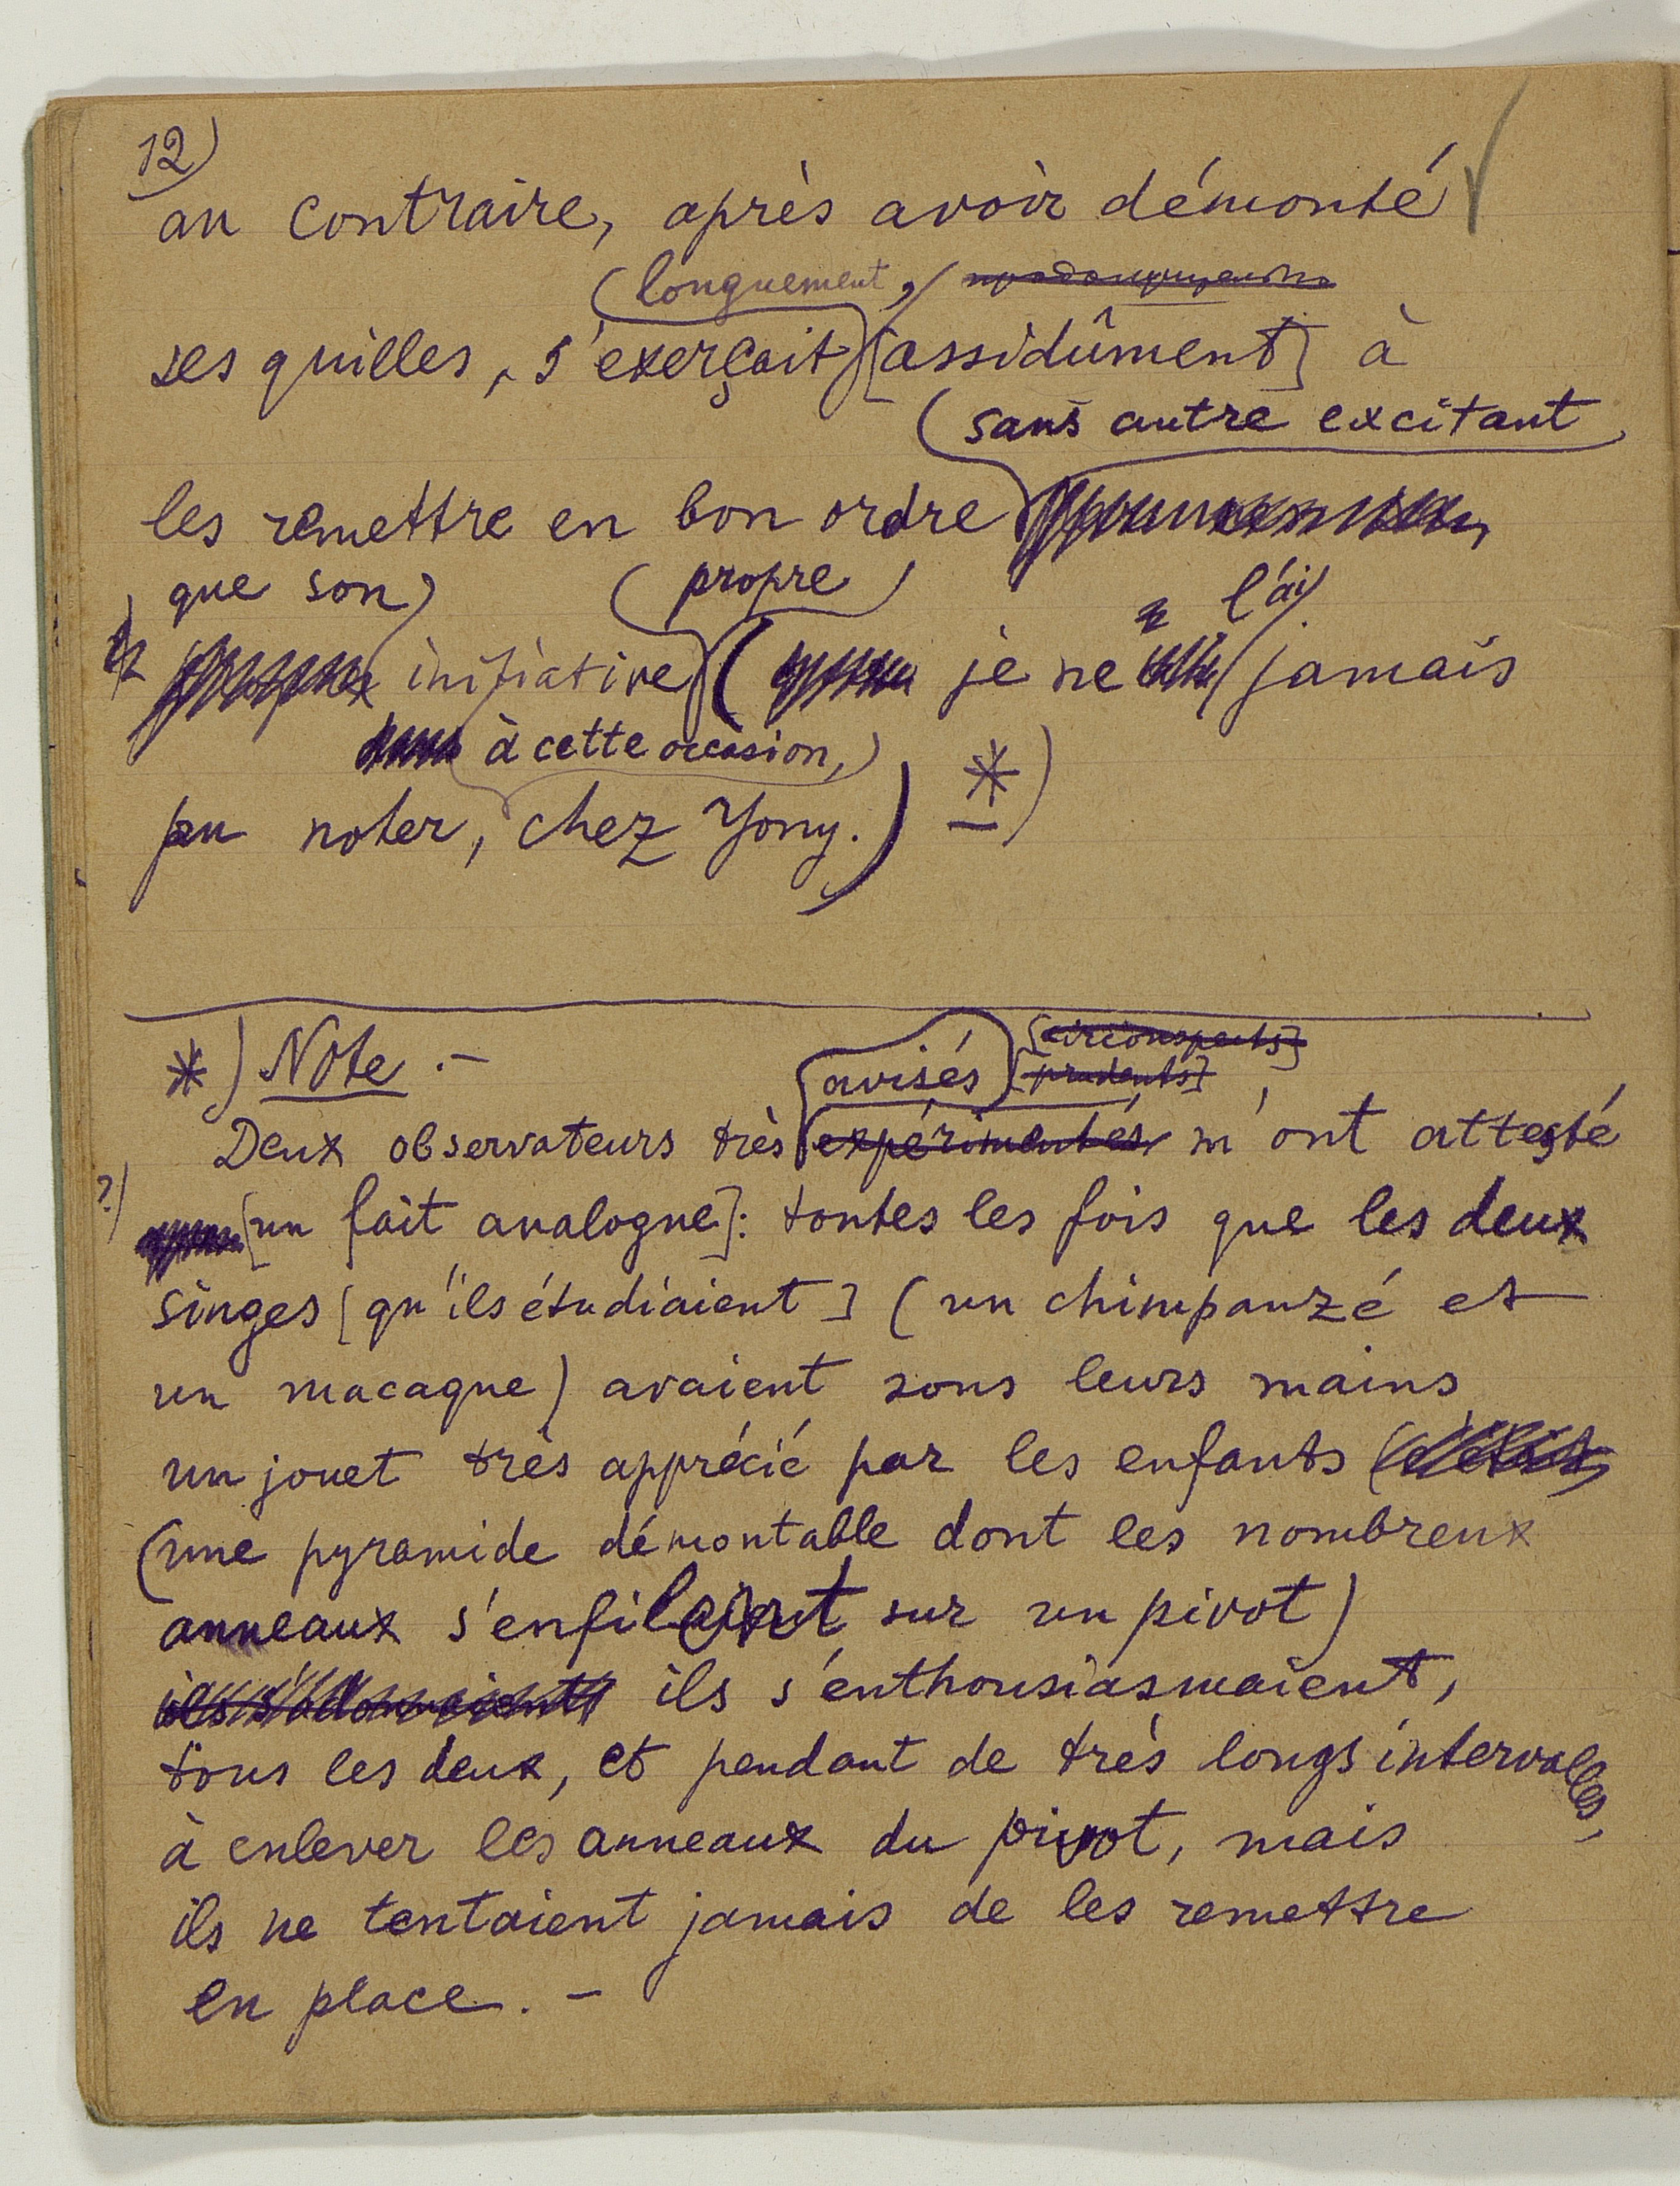 12)
au contraire, après avoir démonté
longuement,
ses quilles, s'exerçait [assidûment] à
sans autre excitant
les remettre en bon ordre
que son propre l'ai
initiative ( je ne jamais
à cette occasion,
pu noter, chez Yony.) *)
*) Note.-
avisés [circonspects]
[prudents]
Deux observateurs très expérimentés m'ont attesté
?)
[un fait analogue]: toutes les fois que les deux
singes [qu'ils étudiaient] (un chimpanzé et
un macaque) avaient sous leurs mains
un jouet très apprécié par les enfants
(une pyramide démontable dont les nombreux
anneaux s'enfilaient sur un pivot)
ils s'enthousiasmaient,
tous les deux, et pendant de très longs intervalles,
à enlever les anneaux du pivot, mais
ils ne tentaient jamais de les remettre
en place.-